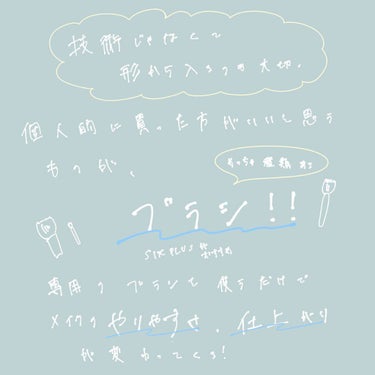 技術じゃなくて
形から入るのも大切。
個人的に買った方がいいと思う
ものが、
めっちゃ種類ある
ブラシ!!
SIXPLUSがおすすめ
専用のブラシを使うだけで
メイクのやりやすさ、仕上がり
が変わってくる!